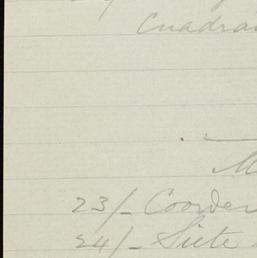 Cuadran
M
23/- Coorden
24/- Siete